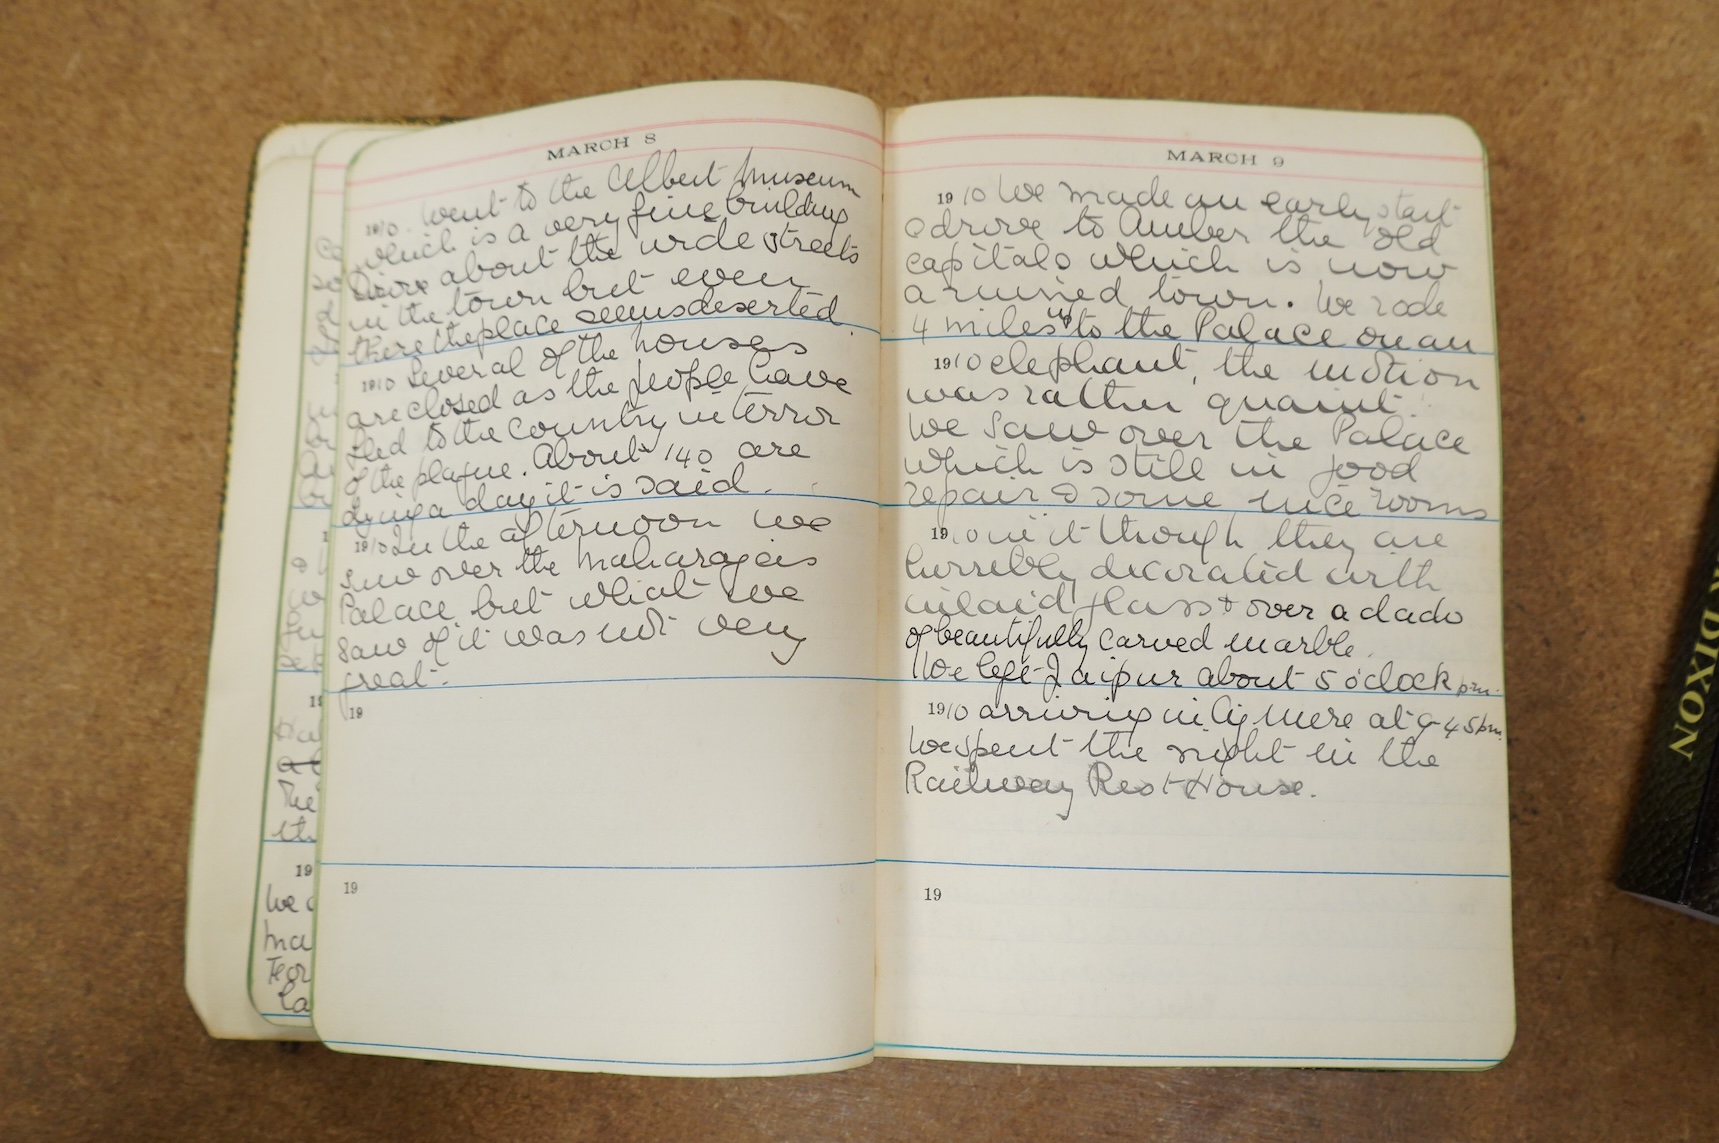 MARCH 8
1910. Went to the Albert Museum
which is a very fine building
Drive about the wide streets
in the town but even
there the place seems deserted.
1910 Several of the houses
are closed as the people have
fled to the country in terror
of the plague. About 140 are
dying a day it is said.
1910 In the afternoon we
saw over the Maharajas
Palace but what we
saw of it was not very
great.
19
19
MARCH 9
1910 We made an early start
& drove to Amber the old
capital which is now
a ruined town. We rode
4 miles up to the Palace on an
1910 elephant, the motion
was rather quaint.
We saw over the Palace
which is still in good
repair & some nice rooms
1910 in it though they are
horribly decorated with
inlaid glass & over a dado
of beautifully carved marble.
We left Jaipur about 5 o'clock pm.
1910 arriving in Aj mere at 9-45pm.
We spent the night in the
Railway Rest House.
19
19
We
The
DIXON